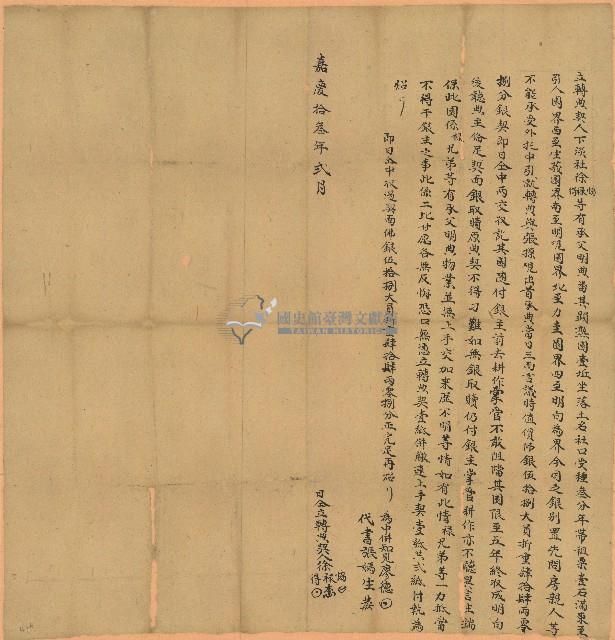 立轉典契人下淡社徐 等有承父明典當其弱熟園壹坵坐落土名社口受種叁分年帶祖粟壹石滿東至
引人園界西至生義園界南至明現園界北至力圭園界四至明白為界今因乏銀別置先問房親人等
不能承受外托中引就轉典與張 出首承典當日三面言議時值價佛銀伍拾捌大員折重肆拾肆兩零
捌分銀契即日仝中兩交收訖其園隨付銀主前去耕作掌管不敢阻擋其園限至五年終收成明白
後聽典主俻足契面銀取贖原典契不得刁難如無銀取贖仍付銀主掌管耕作亦不聽異言生端
保此園係 兄弟等有承父明典物業並無上手交加來歷不明等情如有此情祿兄弟等一力抵當
不得干銀主之事此係二比甘愿各無反悔恐口無憑立轉典契壹紙併繳連上手契壹紙共弍紙付執為
炤
即日仝中收過契面佛銀伍拾捌大員 肆拾肆兩零捌分正完足再炤
為中併知見廖德
代書張嬌生
嘉慶拾叁年弍月
日仝立轉典契人徐
國史館臺灣文獻館
TAIWAN HISTORICA